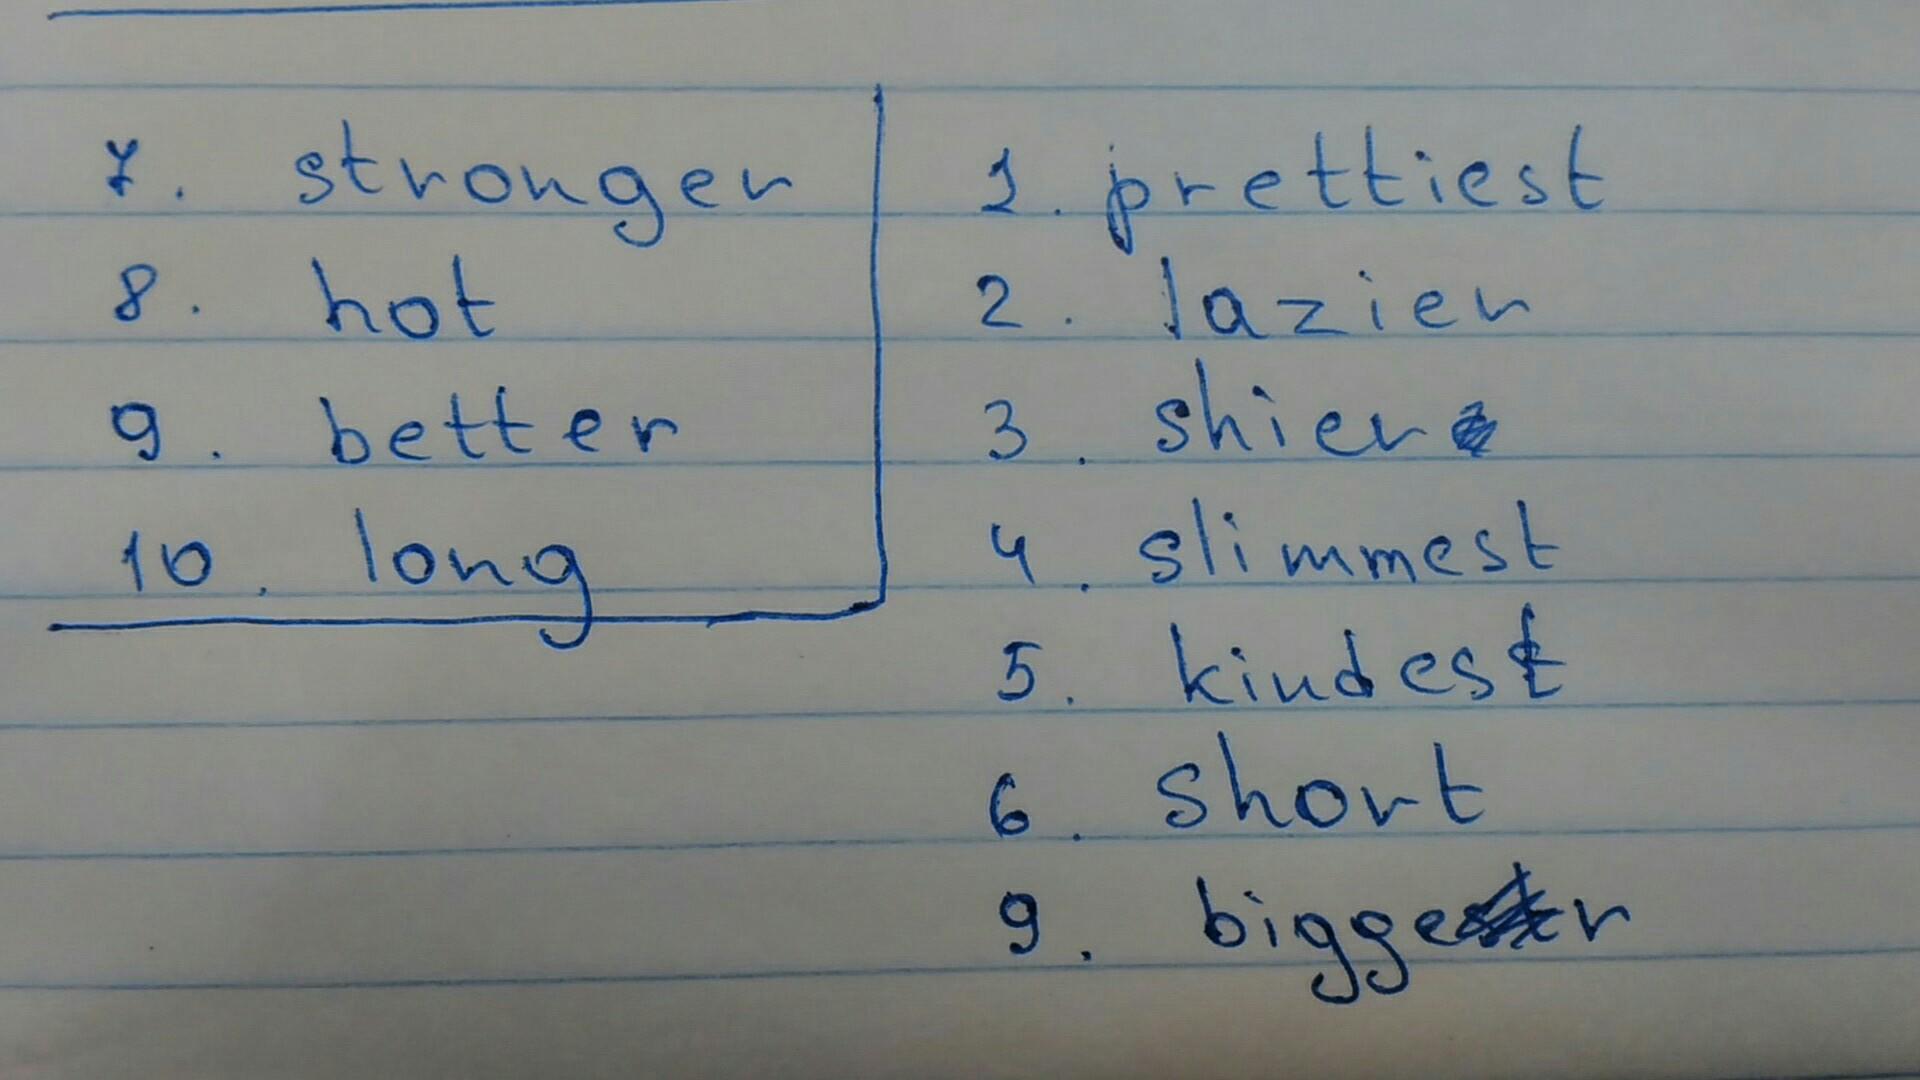 7. stronger
8. hot
9. better
10. long
1. prettiest
2. lazier
3. shier
4. slimmest
5. kindest
6. short
9. bigger